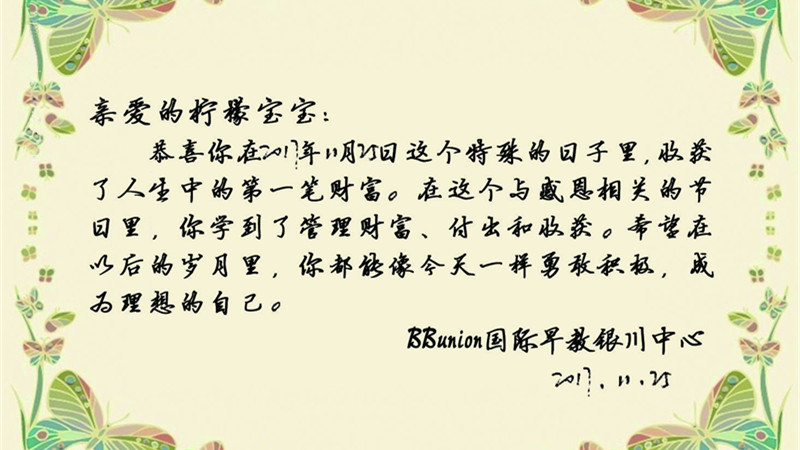 亲爱的柠檬宝宝：
恭喜你在2017年11月25日这个特殊的日子里，收获
了人生中的第一笔财富。在这个与感恩相关的节
日里，你学到了管理财富、付出和收获。希望在
以后的岁月里，你都能像今天一样勇敢积极，成
为理想的自己。
BBunion国际早教银川中心
2017.11.25